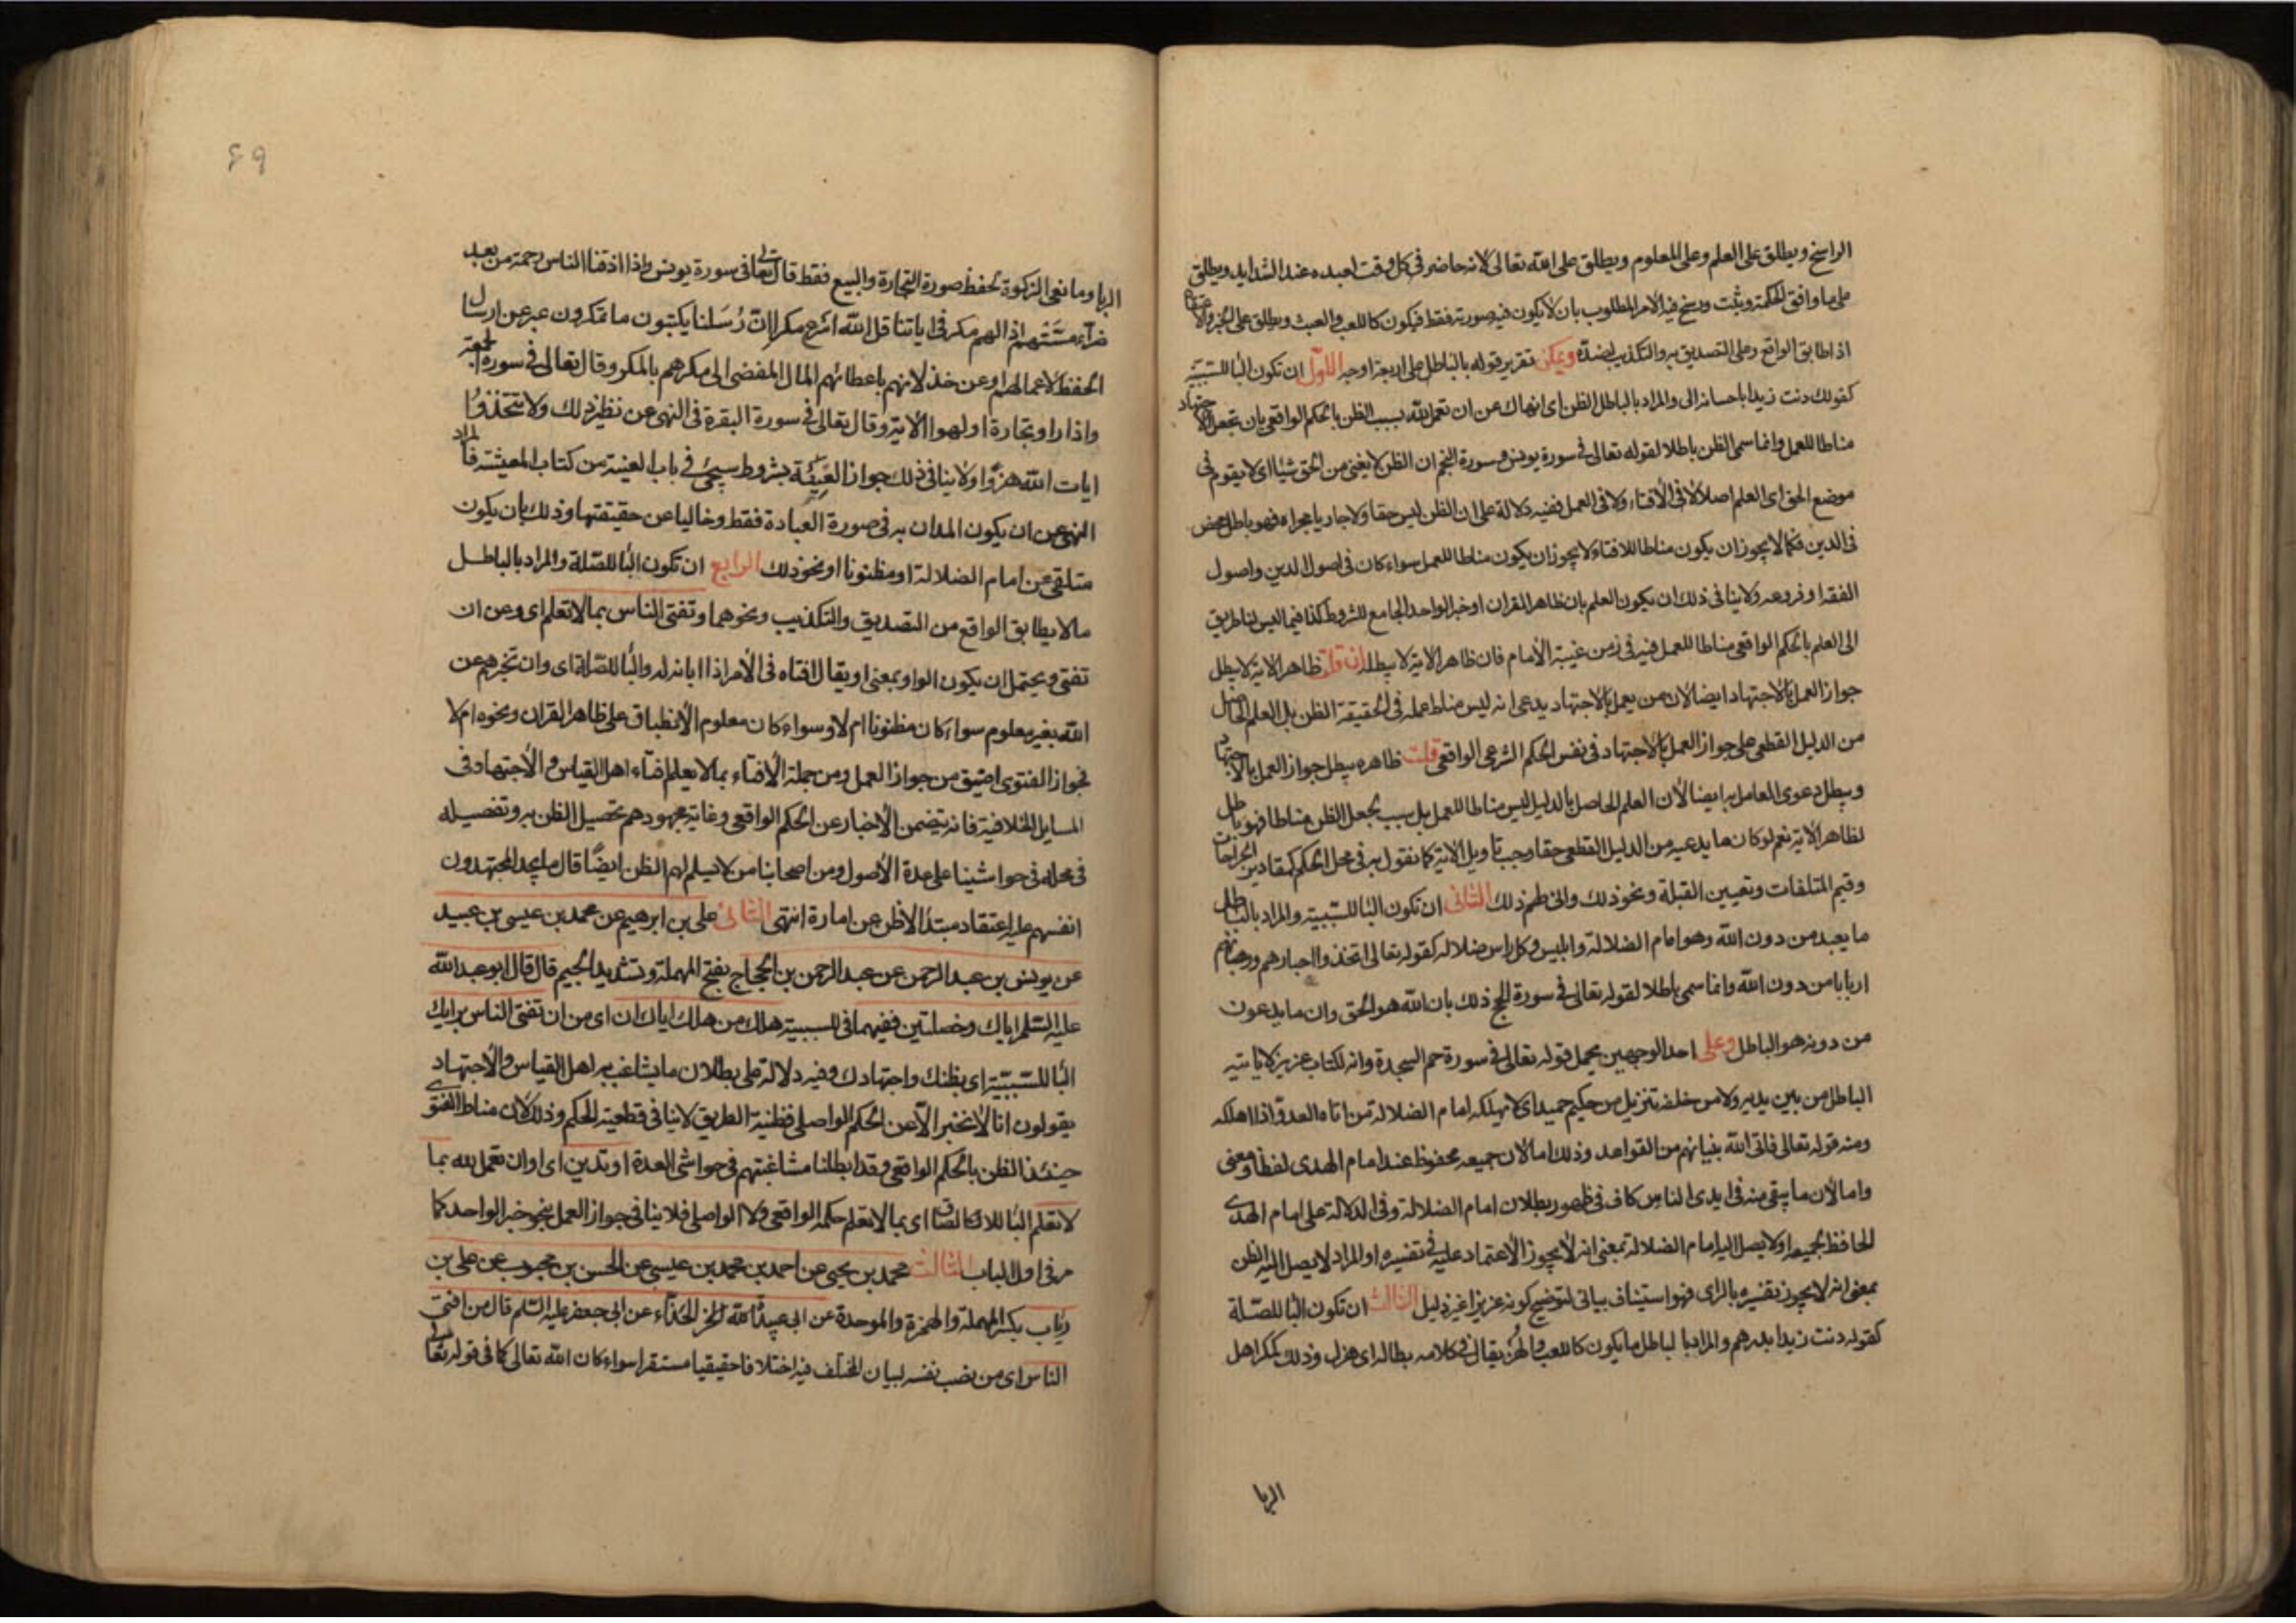 الراسخ ويطلق على العلم وعلى المعلوم ويطلق على الله تعالى لانه حاضر في كل وقت لعبده عند الشدايد ويطلق
على ما وافق الحكمة وثبت ورسخ فيه الامر المطلوب بان لا يكون فيه صورته فقط فيكون كاللعب والعبث ويطلق على الخبر والاعتقاد
اذا طابق الواقع وعلى التصديق به والتكذيب لضده ويمكن تقرير قوله بالباطل على اربعة اوجه الاول ان تكون البا للسببية
كقولك دنت زيدا باحسانه الى والمراد بالباطل الظن اى انهاك عن ان تعمل لله بسبب الظن بالحكم الواقعي بان تجعل الاجتهاد
مناطا للعمل وانما سمى الظن باطلا لقوله تعالى في سورة يونس وسورة النجم ان الظن لا يغنى من الحق شيئا اى لا يقوم في
موضع الحق اى العلم اصلا لا في الافتاء ولا في العمل ففيه دلالة على ان الظن ليس حقا ولا جاريا مجراه فهو باطل محض
في الدين فكما لا يجوز ان يكون مناطا للافتاء لا يجوز ان يكون مناطا للعمل سواء كان في اصول الدين واصول
الفقه او فروعه ولا ينافى ذلك ان يكون العلم بان ظاهر القران او خبر الواحد الجامع للشروط كذا فيما ليس لنا طريق
الى العلم بالحكم الواقعي مناطا للعمل فيه في زمن غيبة الامام فان ظاهر الاية لا يبطله ان قلت ظاهر الاية لا يبطل
جواز العمل بالاجتهاد ايضا لان من يعمل بالاجتهاد يدعى انه ليس مناط عمله في الحقيقة الظن بل العلم الحاصل
من الدليل القطعي على جواز العمل بالاجتهاد في نفس الحكم الشرعى الواقعي قلت ظاهره يبطل جواز العمل بالاجتهاد
ويبطل دعوى العامل به ايضا لان العلم الحاصل بالدليل ليس مناطا للعمل بل سبب لجعل الظن مناطا فهو باطل
لظاهر الاية نعم لو كان ما يدعيه من الدليل القطعي حقا وجب تاويل الاية كما نقول به في محل الحكم كمقادير الجراحات
وقيم المتلفات وتعيين القبلة ونحو ذلك ذلك الثانى ان تكون البا للسببية والمراد بالباطل
ما يعبد من دون الله وهو امام الضلالة وابليس وكل راس ضلالة كقوله تعالى اتخذوا احبارهم ورهبانهم
اربابا من دون الله وانما سمى باطلا لقوله تعالى في سورة الحج ذلك بان الله هو الحق وان ما يدعون
من دونه هو الباطل وعلى احد الوجهين يحمل قوله تعالى في سورة حم السجدة وانه لكتاب عزيز لا ياتيه
الباطل من بين يديه ولا من خلفه تنزيل من حكيم حميد اى لا يهلكه امام الضلالة من اتاه العدو اذا اهلكه
ومنه قوله تعالى فاتى الله بنيانهم من القواعد وذلك اما لان جميعه محفوظ عند امام الهدى لفظا ومعنى
واما لان ما يبقى منه في ايدى الناس كاف في ظهور بطلان امام الضلالة وفي الدلالة على امام الهدى
الحافظ لجميعه او لا يصل اليه امام الضلالة بمعنى انه لا يجوز الاعتماد عليه في تفسيره او المراد لا يصل اليه الظن
بمعنى انه لا يجوز تفسيره بالراى فهو استيناف بيانى لتوضيح كونه عزيزا غير ذليل الثالث ان تكون البا للصلة
كقوله دنت زيدا بدرهم والمراد بالباطل ما يكون كاللعب والهزل يقال في كلامه بطالة اى هزل وذلك كمكر اهل
الربا
٤٩
الربا ومانعى الزكوة لحفظ صورة التجارة والبيع فقط قال تعالى في سورة يونس واذا اذقنا الناس رحمة من بعد
ضرآء مستهم اذا لهم مكر في اياتنا قل الله اسرع مكرا ان رسلنا يكتبون ما تمكرون عبر عن ارسال
الحفظة لاعمالهم وعن خذلانهم باعطائهم المال المفضى الى مكرهم بالمكر وقال تعالى في سورة الجمعة
واذا راوا تجارة او لهوا الاية وقال تعالى في سورة البقرة في النهى عن نظير ذلك ولا تتخذوا
ايات الله هزوا ولا ينافى ذلك جواز العينة بشروط سيجئ في باب العينة من كتاب المعيشة فالمراد
النهى عن ان يكون المدان به في صورة العبادة فقط وخاليا عن حقيقتها وذلك بان يكون
متلقى عن امام الضلالة او مظنونا او نحو ذلك الرابع ان تكون البا للصلة والمراد بالباطل
ما لا يطابق الواقع من التصديق والتكذيب ونحوهما وتفتى الناس بما لا تعلم اى وعن ان
تفتى ويحتمل ان يكون الواو بمعنى او يقال افتاه في الامر اذا ابانه له والبا للصلة اى وان تخبرهم عن
الله بغير معلوم سواء كان مظنونا ام لا وسواء كان معلوم الانطباق على ظاهر القران ونحوه ام لا
فجواز الفتوى اضيق من جواز العمل ومن جملة الافتاء بما لا يعلم افتاء اهل القياس والاجتهاد في
المسايل الخلافية فانه يتضمن الاخبار عن الحكم الواقعي وغاية مجهودهم تحصيل الظن به وتفصيله
في محله في حواشينا على عدة الاصول ومن اصحابنا من لا يسلم لهم الظن ايضا قال ما يجد المجتهدون
انفسهم عليه اعتقاد مبتدأ لا ظن عن امارة انتهى الثانى على بن ابرهيم عن محمد بن عيسى بن عبيد
عن يونس بن عبد الرحمن عن عبد الرحمن بن الحجاج بفتح المهملة وتشديد الجيم قال قال ابو عبد الله
عليه السلم اياك وخصلتين ففيهما في للسببية هلك من هلك اياك ان اى من ان تفتى الناس برايك
البا للسببية اى بظنك واجتهادك وفيه دلالة على بطلان ما يشاغب به اهل القياس والاجتهاد
يقولون انا لا نخبر الا عن الحكم الواصلى فظنية الطريق لا ينافى قطعية الحكم وذلك لان مناط الفتوى
حينئذ الظن بالحكم الواقعي وقد ابطلنا مشاغبتهم في حواشى العدة او تدين اى او ان تعمل لله بما
لا تعلم اى بما لا تعلم حكمه الواقعي ولا الواصلى فلا ينافى جواز العمل بنحو خبر الواحد كما
مر في اول الباب الثالث محمد بن يحيى عن احمد بن محمد بن عيسى عن الحسن بن محبوب عن على بن
رئاب بكسر المهملة والهمزة والموحدة عن ابى عبيدة الحذاء عن ابى جعفر عليه السلم قال من افتى
الناس اى من نصب نفسه لبيان المختلف فيه اختلافا حقيقيا مستقرا سواء كان الله تعالى كما في قوله تعالى